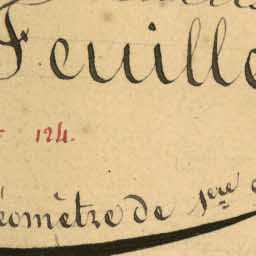 Feuille
124.
éomètre de 1ere c